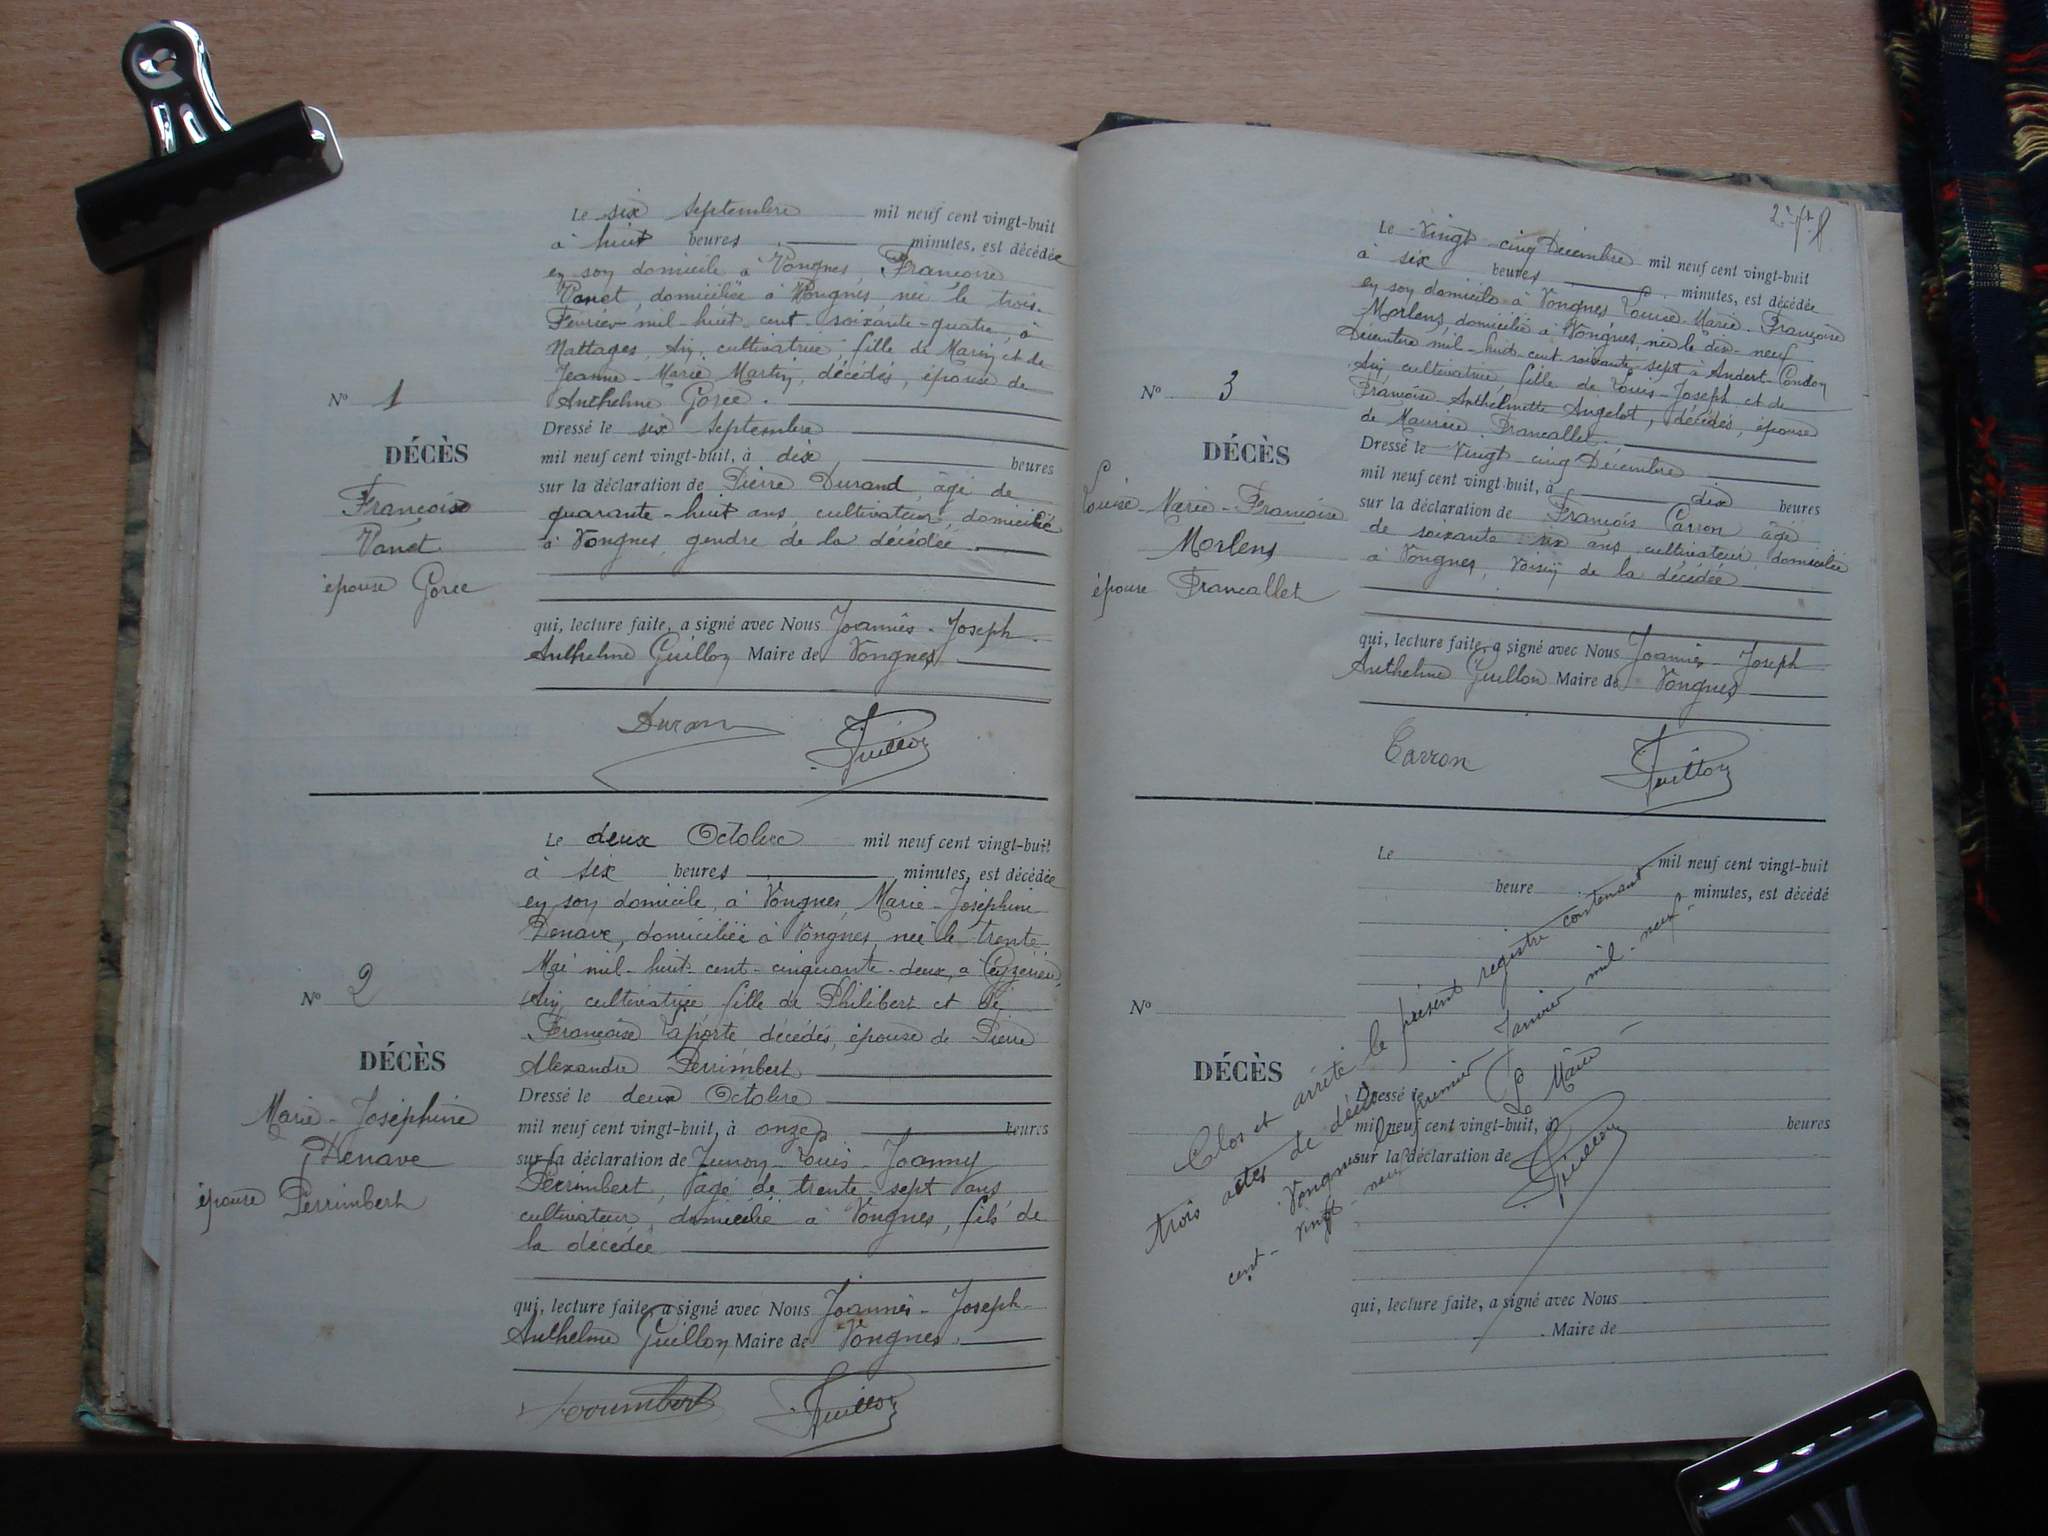 N° 1
DÉCÈS
Françoise
Vanet
épouse Goree
Le six Septembre mil neuf cent vingt-huit
à huit heures minutes, est décédée
en son domicile à Vongnes, Françoise
Vanet, domiciliée à Vongnes, née le trois
Février mil-huit-cent-soixante-quatre, à
Nattages, Ain, cultivatrice, fille de Marin et de
Jeanne-Marie Martin, décédés, épouse de
Anthelme Goree.
Dressé le six Septembre
mil neuf cent vingt-huit, à dix heures
sur la déclaration de Pierre Durand, âgé de
quarante-huit ans, cultivateur, domicilié
à Vongnes, gendre de la décédée
qui, lecture faite, a signé avec Nous Joannès-Joseph-
Anthelme Guillon Maire de Vongnes
Duran Guillon
N° 2
DÉCÈS
Marie-Joséphine
Penave
épouse Perrimbert
Le deux Octobre mil neuf cent vingt-huit
à six heures minutes, est décédée
en son domicile, à Vongnes, Marie-Joséphine
Penave, domiciliée à Vongnes, née le trente
Mai mil-huit-cent-cinquante-deux, à Ceyzérieu,
Ain, cultivatrice fille de Philibert et de
Françoise Laporte, décédés, épouse de Pierre
Alexandre Perrimbert
Dressé le deux Octobre
mil neuf cent vingt-huit, à onze heures
sur la déclaration de Louis-Joanny
Perrimbert, âgé de trente sept ans
cultivateur, domicilié à Vongnes, fils de
la décédée
qui, lecture faite, a signé avec Nous Joannès-Joseph-
Anthelme Guillon Maire de Vongnes.
Perrimbert Guillon
N° 3
DÉCÈS
Louise-Marie-Françoise
Morlens
épouse Francallet
Le Vingt cinq Décembre mil neuf cent vingt-huit
à six heures minutes, est décédée
en son domicile à Vongnes Louise-Marie-Françoise
Morlens, domiciliée à Vongnes, née le dix-neuf
Décembre mil-huit-cent soixante-sept à Andert-Condon
Ain, cultivatrice, fille de Louis-Joseph et de
Françoise Anthelmette Angelot, décédés, épouse
de Maurice Francallet.
Dressé le Vingt cinq Décembre
mil neuf cent vingt-huit, à dix heures
sur la déclaration de François Carron âgé
de soixante six ans, cultivateur, domicilié
à Vongnes, Voisin de la décédée
qui, lecture faite, a signé avec Nous Joannès-Joseph
Anthelme Guillon Maire de Vongnes
Carron Guillon
N°
DÉCÈS
Le mil neuf cent vingt-huit
heure minutes, est décédé
Dressé le
mil neuf cent vingt-huit, à heures
sur la déclaration de
qui, lecture faite, a signé avec Nous
Maire de
Clos et arrêté le présent registre contenant
trois actes de décès
Vongnes le premier Janvier mil-neuf-
cent-vingt-neuf
Le Maire
Guillon